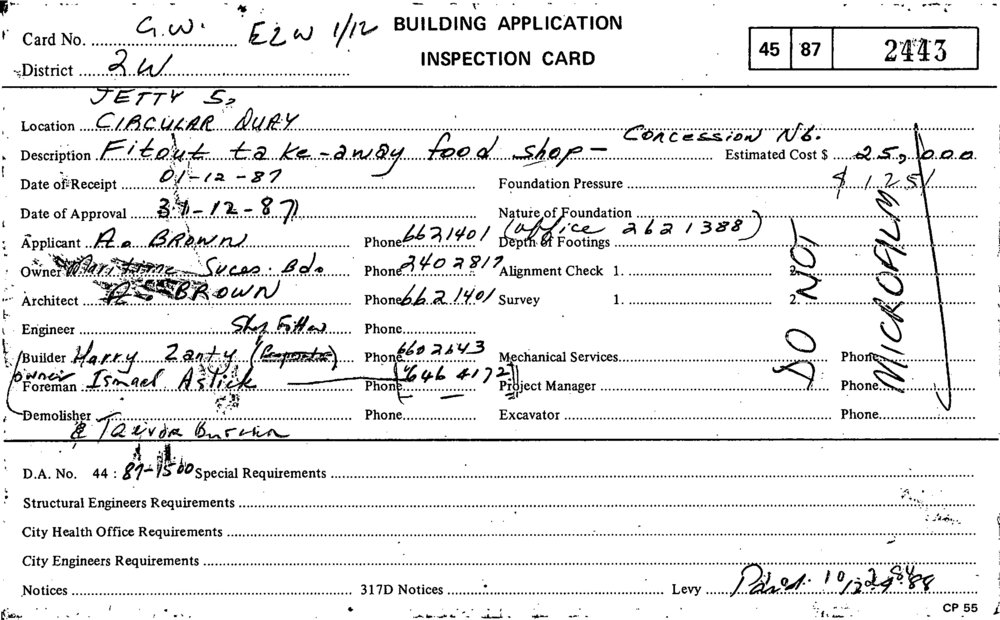 Card No. G.W. E2W 1/12 BUILDING APPLICATION
INSPECTION CARD
45 87 2443
District 2W
JETTY 5,
Location CIRCULAR QUAY
CONCESSION No.
Description Fitout take-away food shop - Estimated Cost $ 25,000
Date of Receipt 01-12-87 Foundation Pressure $125/
Date of Approval 31-12-87 Nature of Foundation
Applicant A. BROWN Phone 6621401 (office 2621388) Depth of Footings
Owner Maritime Phone 2402817 Alignment Check 1. 2.
Architect A. BROWN Phone 6621401 Survey 1. 2.
Engineer Phone
Shop Fitter
Builder Harry Zanty Phone 6602643 Mechanical Services Phone
owner
Foreman Ismael Phone (646 4172) Project Manager Phone
Demolisher Phone Excavator Phone
& Trevor
DO NOT
MICROFILM
D.A. No. 44 : 87-1500 Special Requirements
Structural Engineers Requirements
City Health Office Requirements
City Engineers Requirements
Notices 317D Notices Levy Paid.
CP 55